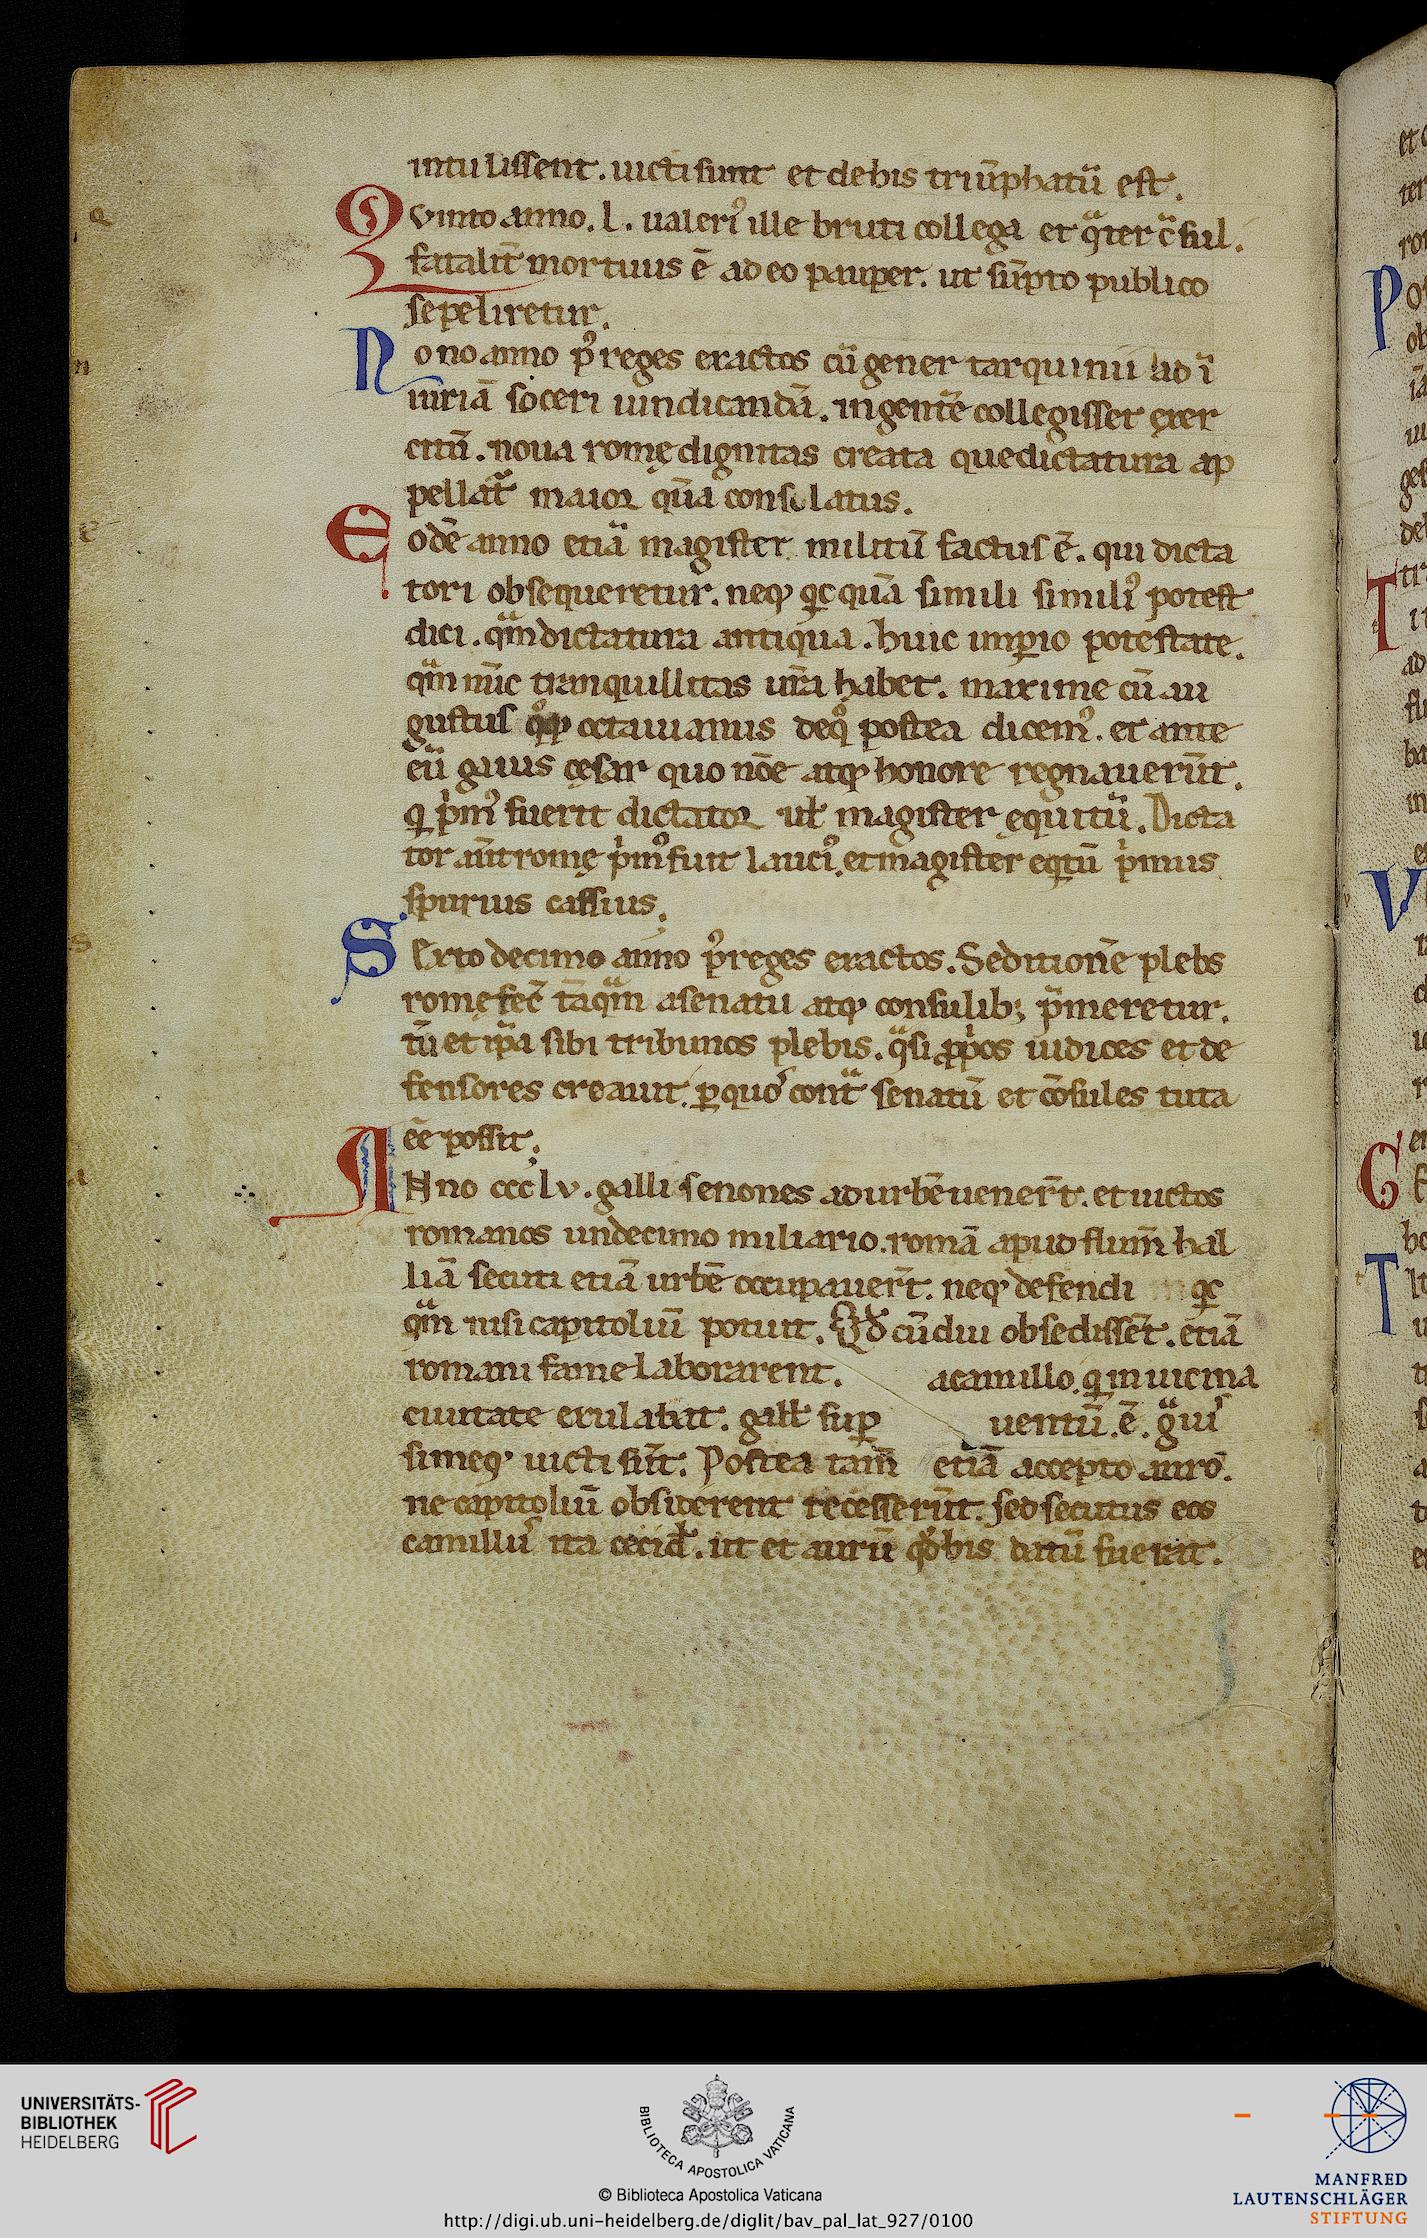 intulissent. uicti sunt et de his triũphatũ est.
Qvinto anno. l. ualeri᾽ ille bruti collega et qͣter c̃sul.
fatalit̃ mortuus ẽ adeo pauper. ut sũpto publico
sepeliretur.
Nono anno p᾽ reges exactos cũ gener tarquinii ad ĩ
iuriã soceri uindicandã. ingentẽ collegisset exer
citũ. noua romę dignitas creata que dictatura ap
pellat᷑ maior quã consulatus.
Eodẽ anno etiã magister militũ factus ẽ. qui dicta
tori obsequeretur. neqꝫ qͥcquã simili simili᾽ potest
dici. qͣm dictatura antiqua. huic imꝑio potestate.
qͣm nũc tranquillitas ur̃a habet. maxime cũ au
gustus qͦqꝫ octauianus de qͦ postea dicem᾽. et ante
eũ gaius cęsar quo nõe atqꝫ honore regnauerũt.
qͥ pͥm᾽ fuerit dictator ul̃ magister equitũ. Dicta
tor aũt romę pͥm᾽ fuit larci᾽. et magister eqͥtũ pͥmus
spurius cassius.
Sexto decimo anno p᾽ reges exactos. Seditionẽ plebs
romę fec̃ tãqͣm a senatu atqꝫ consulibꝫ p̃meretur.
tũ et ip̃a sibi tribunos plebis. qͣsi ꝓpͥos iudices et de
fensores creauit. ꝑ quos contͣ senatũ et cõsules tuta
eẽ possit.
Anno ccc lv. galli senones ad urbẽ uener̃t. et uictos
romanos undecimo miliario. romã apud flum̃ hal
liã secuti etiã urbẽ occupauer̃t. neqꝫ defendi qͥc
qͣm nisi capitoliũ potuit. Qd̃ cũ diu obsedissẽt. etiã
romani fame laborarent. a camillo. qͥ in uicina
ciuitate exulabat. gall̃ suꝑ uentũ. ẽ. gͣui
simeqꝫ uicti sũt. Postea tam̃ etiã accepto auro.
ne capitoliũ obsiderent recesserũt. sed secutus eos
camillus ita cecid̃. ut et aurũ qd̃ his datũ fuerat.
UNIVERSITÄTS-
BIBLIOTHEK
HEIDELBERG
BIBLIOTECA APOSTOLICA VATICANA
© Biblioteca Apostolica Vaticana
http://digi.ub.uni-heidelberg.de/diglit/bav_pal_lat_927/0100
MANFRED
LAUTENSCHLÄGER
STIFTUNG